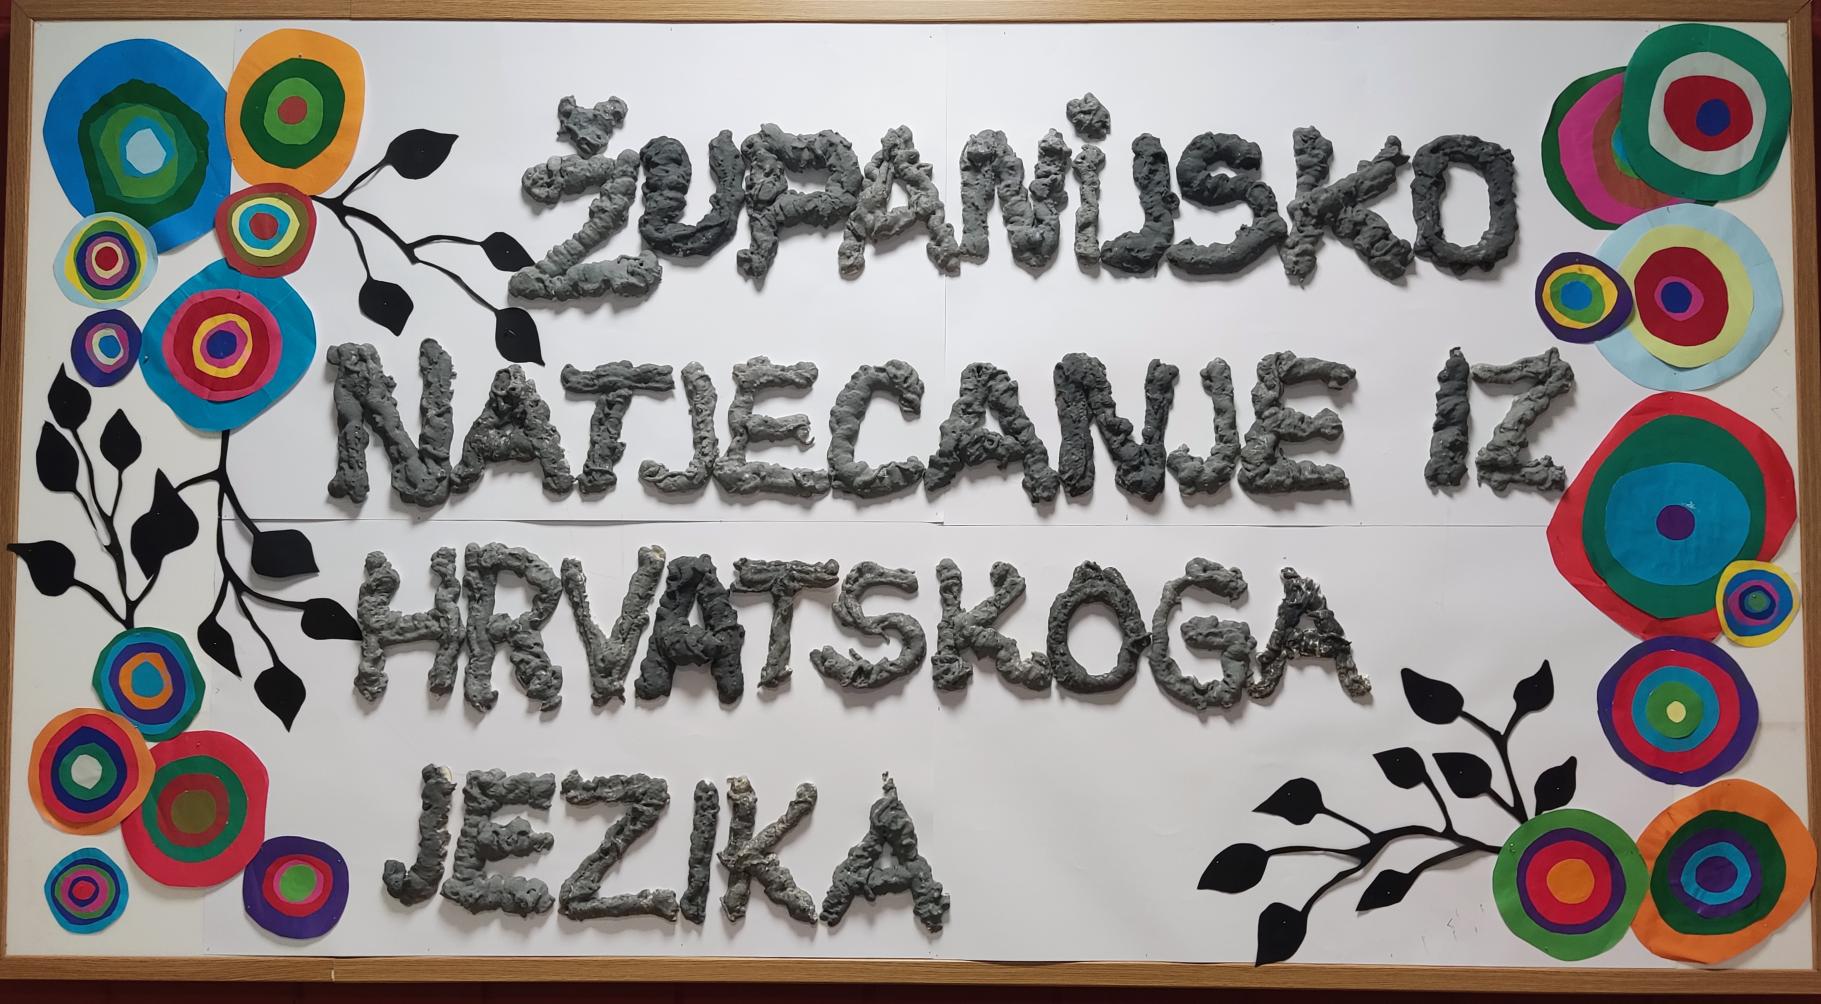 ŽUPANiJSKO
NATJECANJE IZ
HRVATSKOGA
JEZIKA